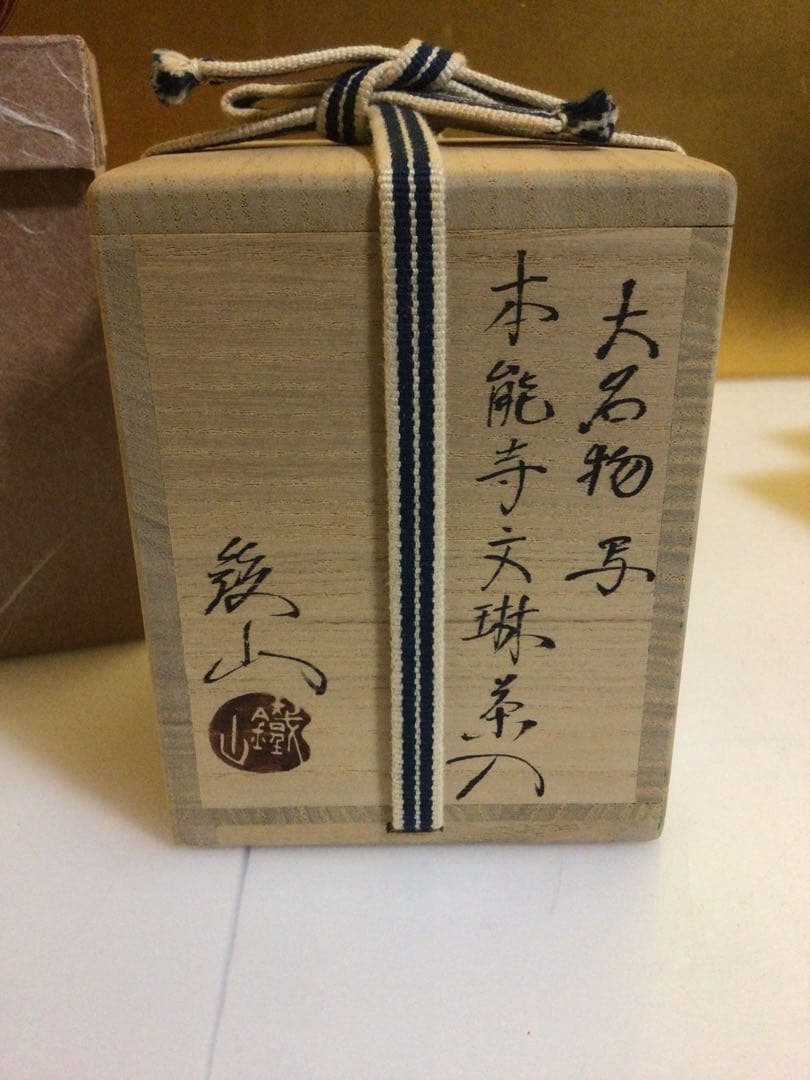 大名物 写
本能寺文琳茶入
山
鐵山